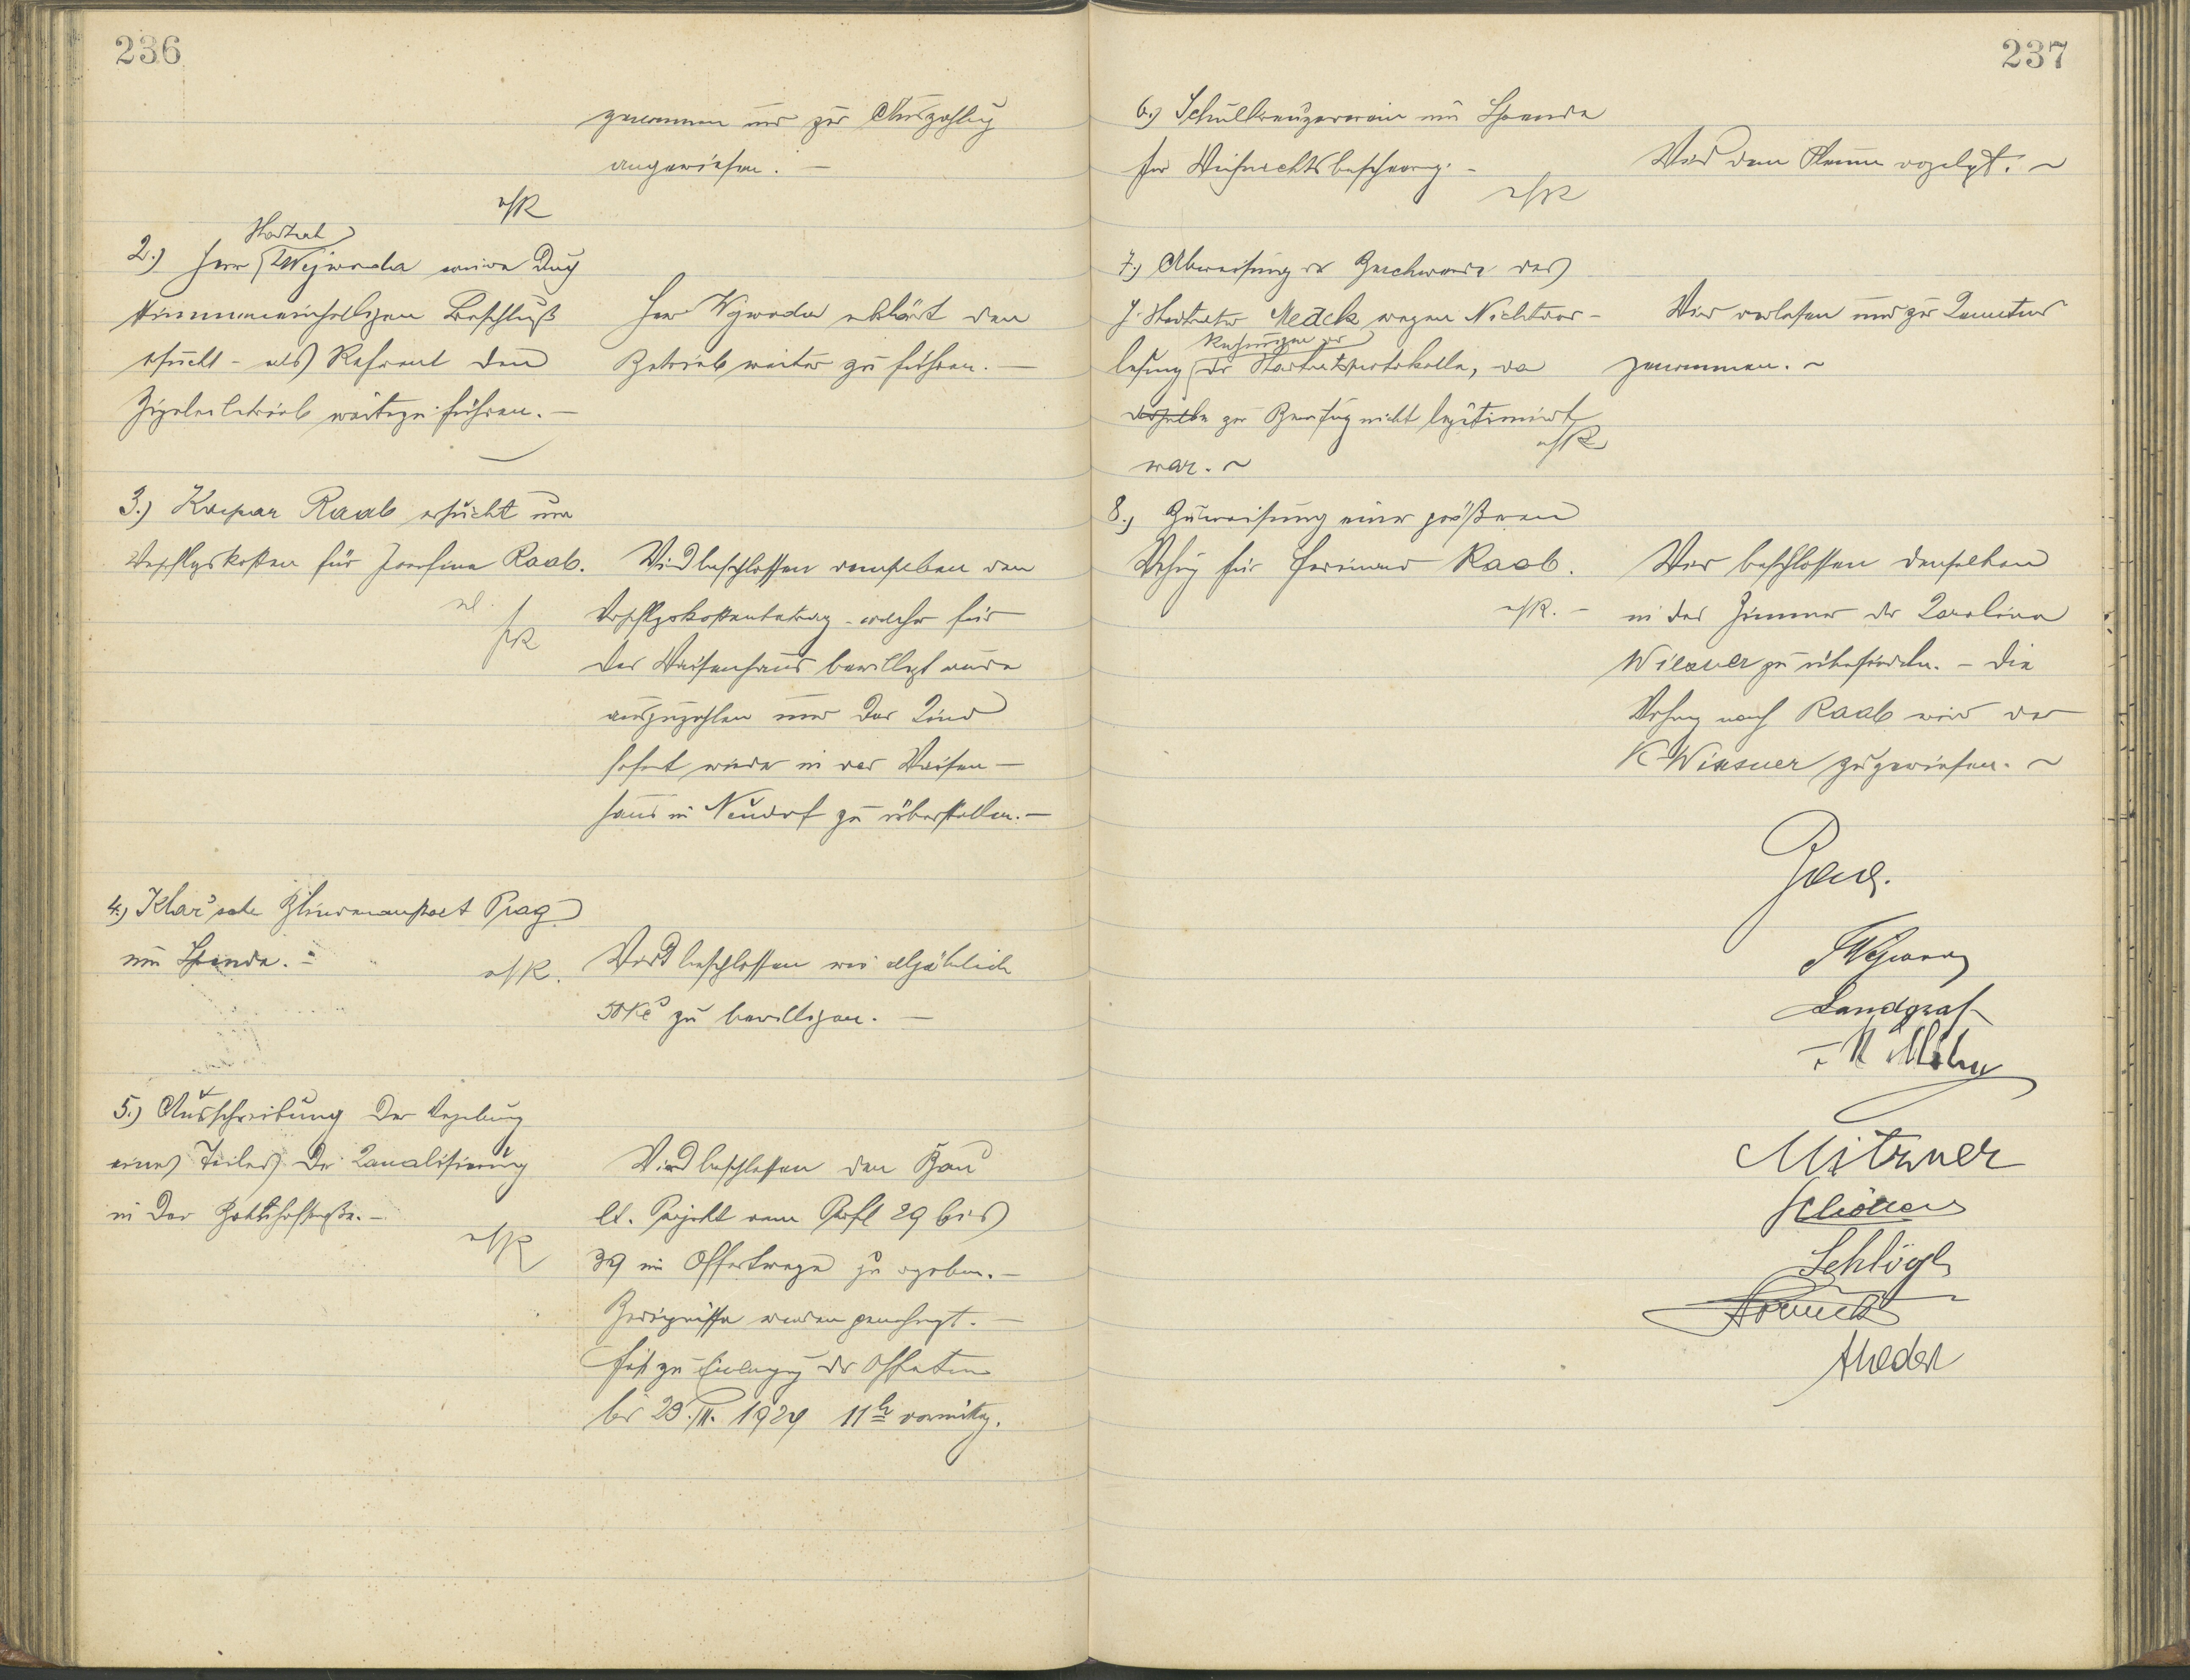 236
genommen und zur Auszahlung
angewiesen. –
2.) Herr Stadtrat Wejwoda wurde durch
stimmeneinhelligen Beschluß
ersucht – als Referent den
Ziegeleibetrieb weiterzuführen. –
Herr Wejwoda erklärt den
Betrieb weiter zu führen. –
3.) Kaspar Raab ersucht um
Verpflgskosten für Josefine Raab.
Wird beschlossen demselben den
Verpflgskostenbetrag – welcher für
das Waisenhaus bewilligt wurde
auszuzahlen und das Kind
sofort wieder in das Waisen–
haus in Neudorf zu überstellen. –
4.) Klar'sche Blindenanstalt Prag
um Spende. –
Wird beschlossen wie alljährlich
50 Kč zu bewilligen. –
5.) Ausschreibung der Vergebung
eines Teiles der Kanalisierung
in der
Wird beschlossen den Bau
lt. Projekt vom Profl 29 bis
39 im Offertwege zu vergeben. –
Bedingnisse wurden genehmigt. –
Frist zur Einbringung der Offerten
bis 1924 11h vormittg.
237
6.) Schulkreuzerverein um Spende
für Weihnachtsbescherung. –
Wird dem Plenum vorgelegt. ~
7.) Abweisung der Beschwerde des
H. Stadtrates Medek wegen Nichtver–
lesung der Stadtratsprotokolle, da
derselbe zur Berufung nicht legitimiert
war. ~
Wird verlesen und zur Kenntnis
genommen. ~
8.) Zuweisung einer größeren
Wohng für Ferdinand Raab.
Wird beschlossen denselben
in das Zimmer der Karolina
Wiesner zu übersiedeln. – Die
Wohng nach Raab wird der
K Wiesner zugewiesen. ~
Landgraf
Mitzner
Schlögl